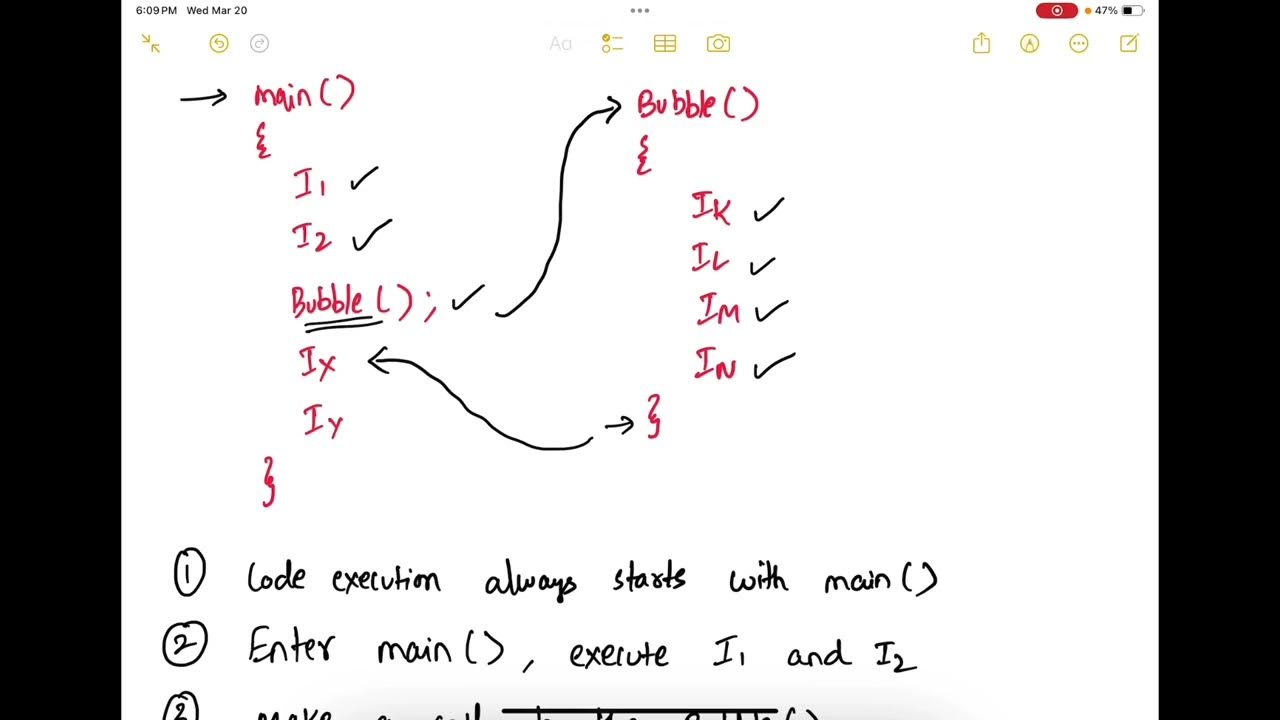 6:09 PM Wed Mar 20
47%
Aa
main()
{
I1
I2
Bubble();
IX
IY
}
Bubble()
{
IK
IL
IM
IN
}
1 Code execution always starts with main()
2 Enter main(), execute I1 and I2
3 Make a call to